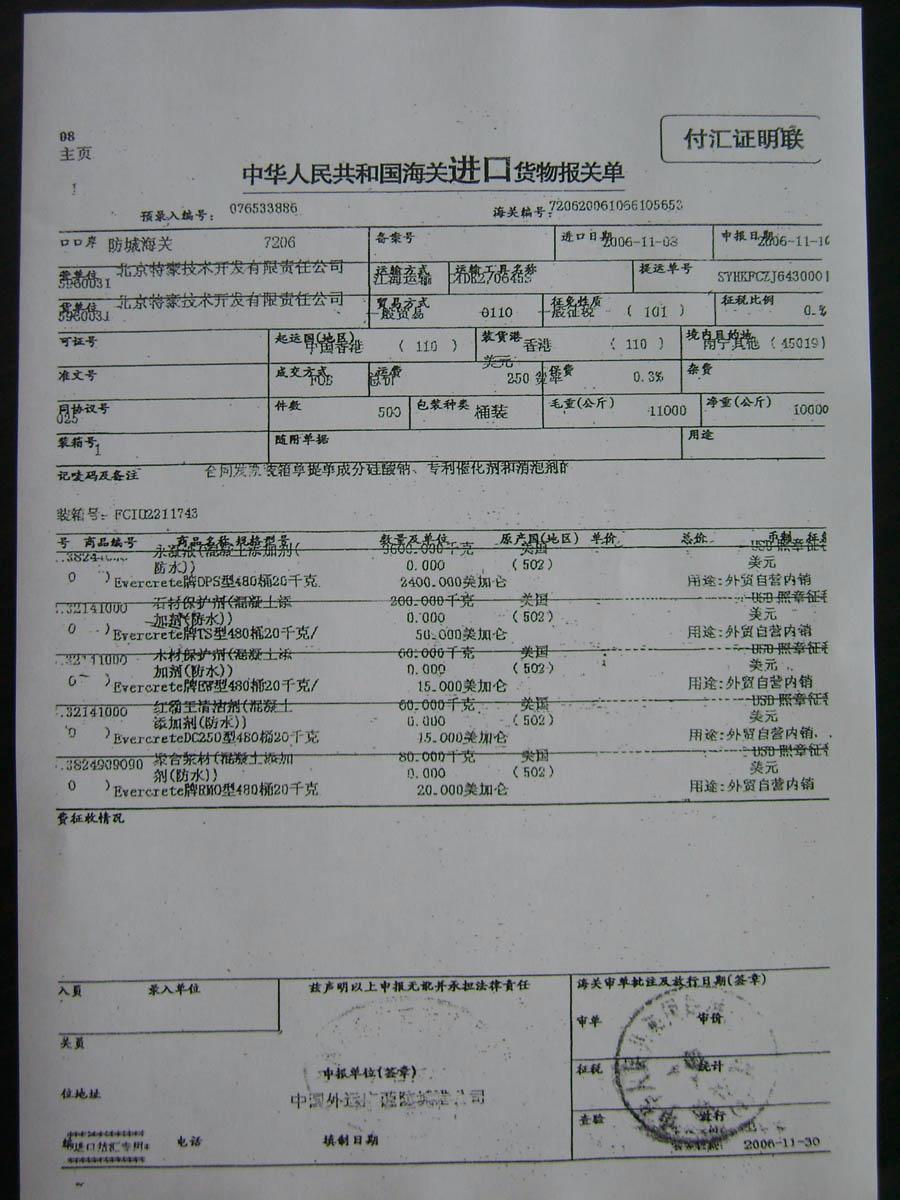 08
主页
付汇证明联
中华人民共和国海关进口货物报关单
预录入编号: 076533886 海关编号: 720620061066105653
口口岸 防城海关 7206 备案号 进口日期 2006-11-08 申报日期
营单位 北京特豪技术开发有限责任公司 运输方式 江海运输 运输工具名称 提运单号
货单位 北京特豪技术开发有限责任公司 贸易方式 一般贸易 0110 征免性质 一般征税 (101) 征税比例
可证号 起运国(地区) 中国香港 (110) 装货港 香港 (110) 境内目的地 南宁其他 (45019)
美元
准文号 成交方式 FOB 运费 总价 250 保费 0.3% 杂费
同协议号 件数 500 包装种类 桶装 毛重(公斤) 11000 净重(公斤) 10000
025
装箱号 1 随附单据 用途
记唛码及备注 合同发票装箱单提单成分硅酸钠、专利催化剂和消泡剂的
装箱号: FCIU2211743
号 商品编号 商品名称、规格型号 数量及单位 原产国(地区) 单价 总价 币制
永凝液(混凝土添加剂( 9600.000千克 美国 USD 照章征
0 ) 防水)) 0.000 (502) 美元
Evercrete牌DPS型480桶20千克 2400.000美加仑 用途:外贸自营内销
32141000 石材保护剂(混凝土添 200.000千克 美国 USD 照章征
0 ) 加剂(防水)) 0.000 (502) 美元
Evercrete牌TS型480桶20千克/ 50.000美加仑 用途:外贸自营内销
木材保护剂(混凝土添 60.000千克 美国 USD 照章征
0 ) 加剂(防水)) 0.000 (502) 美元
Evercrete牌EW型480桶20千克/ 15.000美加仑 用途:外贸自营内销
32141000 清洁剂(混凝土 60.000千克 美国 USD 照章征
0 ) 添加剂(防水)) 0.000 (502) 美元
EvercreteDC250型480桶20千克 15.000美加仑 用途:外贸自营内销
3824909090 聚合浆材(混凝土添加 80.000千克 美国 USD 照章征
0 ) 剂(防水)) 0.000 (502) 美元
Evercrete牌RMO型480桶20千克 20.000美加仑 用途:外贸自营内销
费征收情况
入员 录入单位 兹声明以上申报无讹并承担法律责任 海关审单批注及放行日期(签章)
审单 审价
关员
征税 统计
申报单位(签章)
位地址 中国外运广西防城港公司
查验 放行
电话 填制日期 2006-11-30